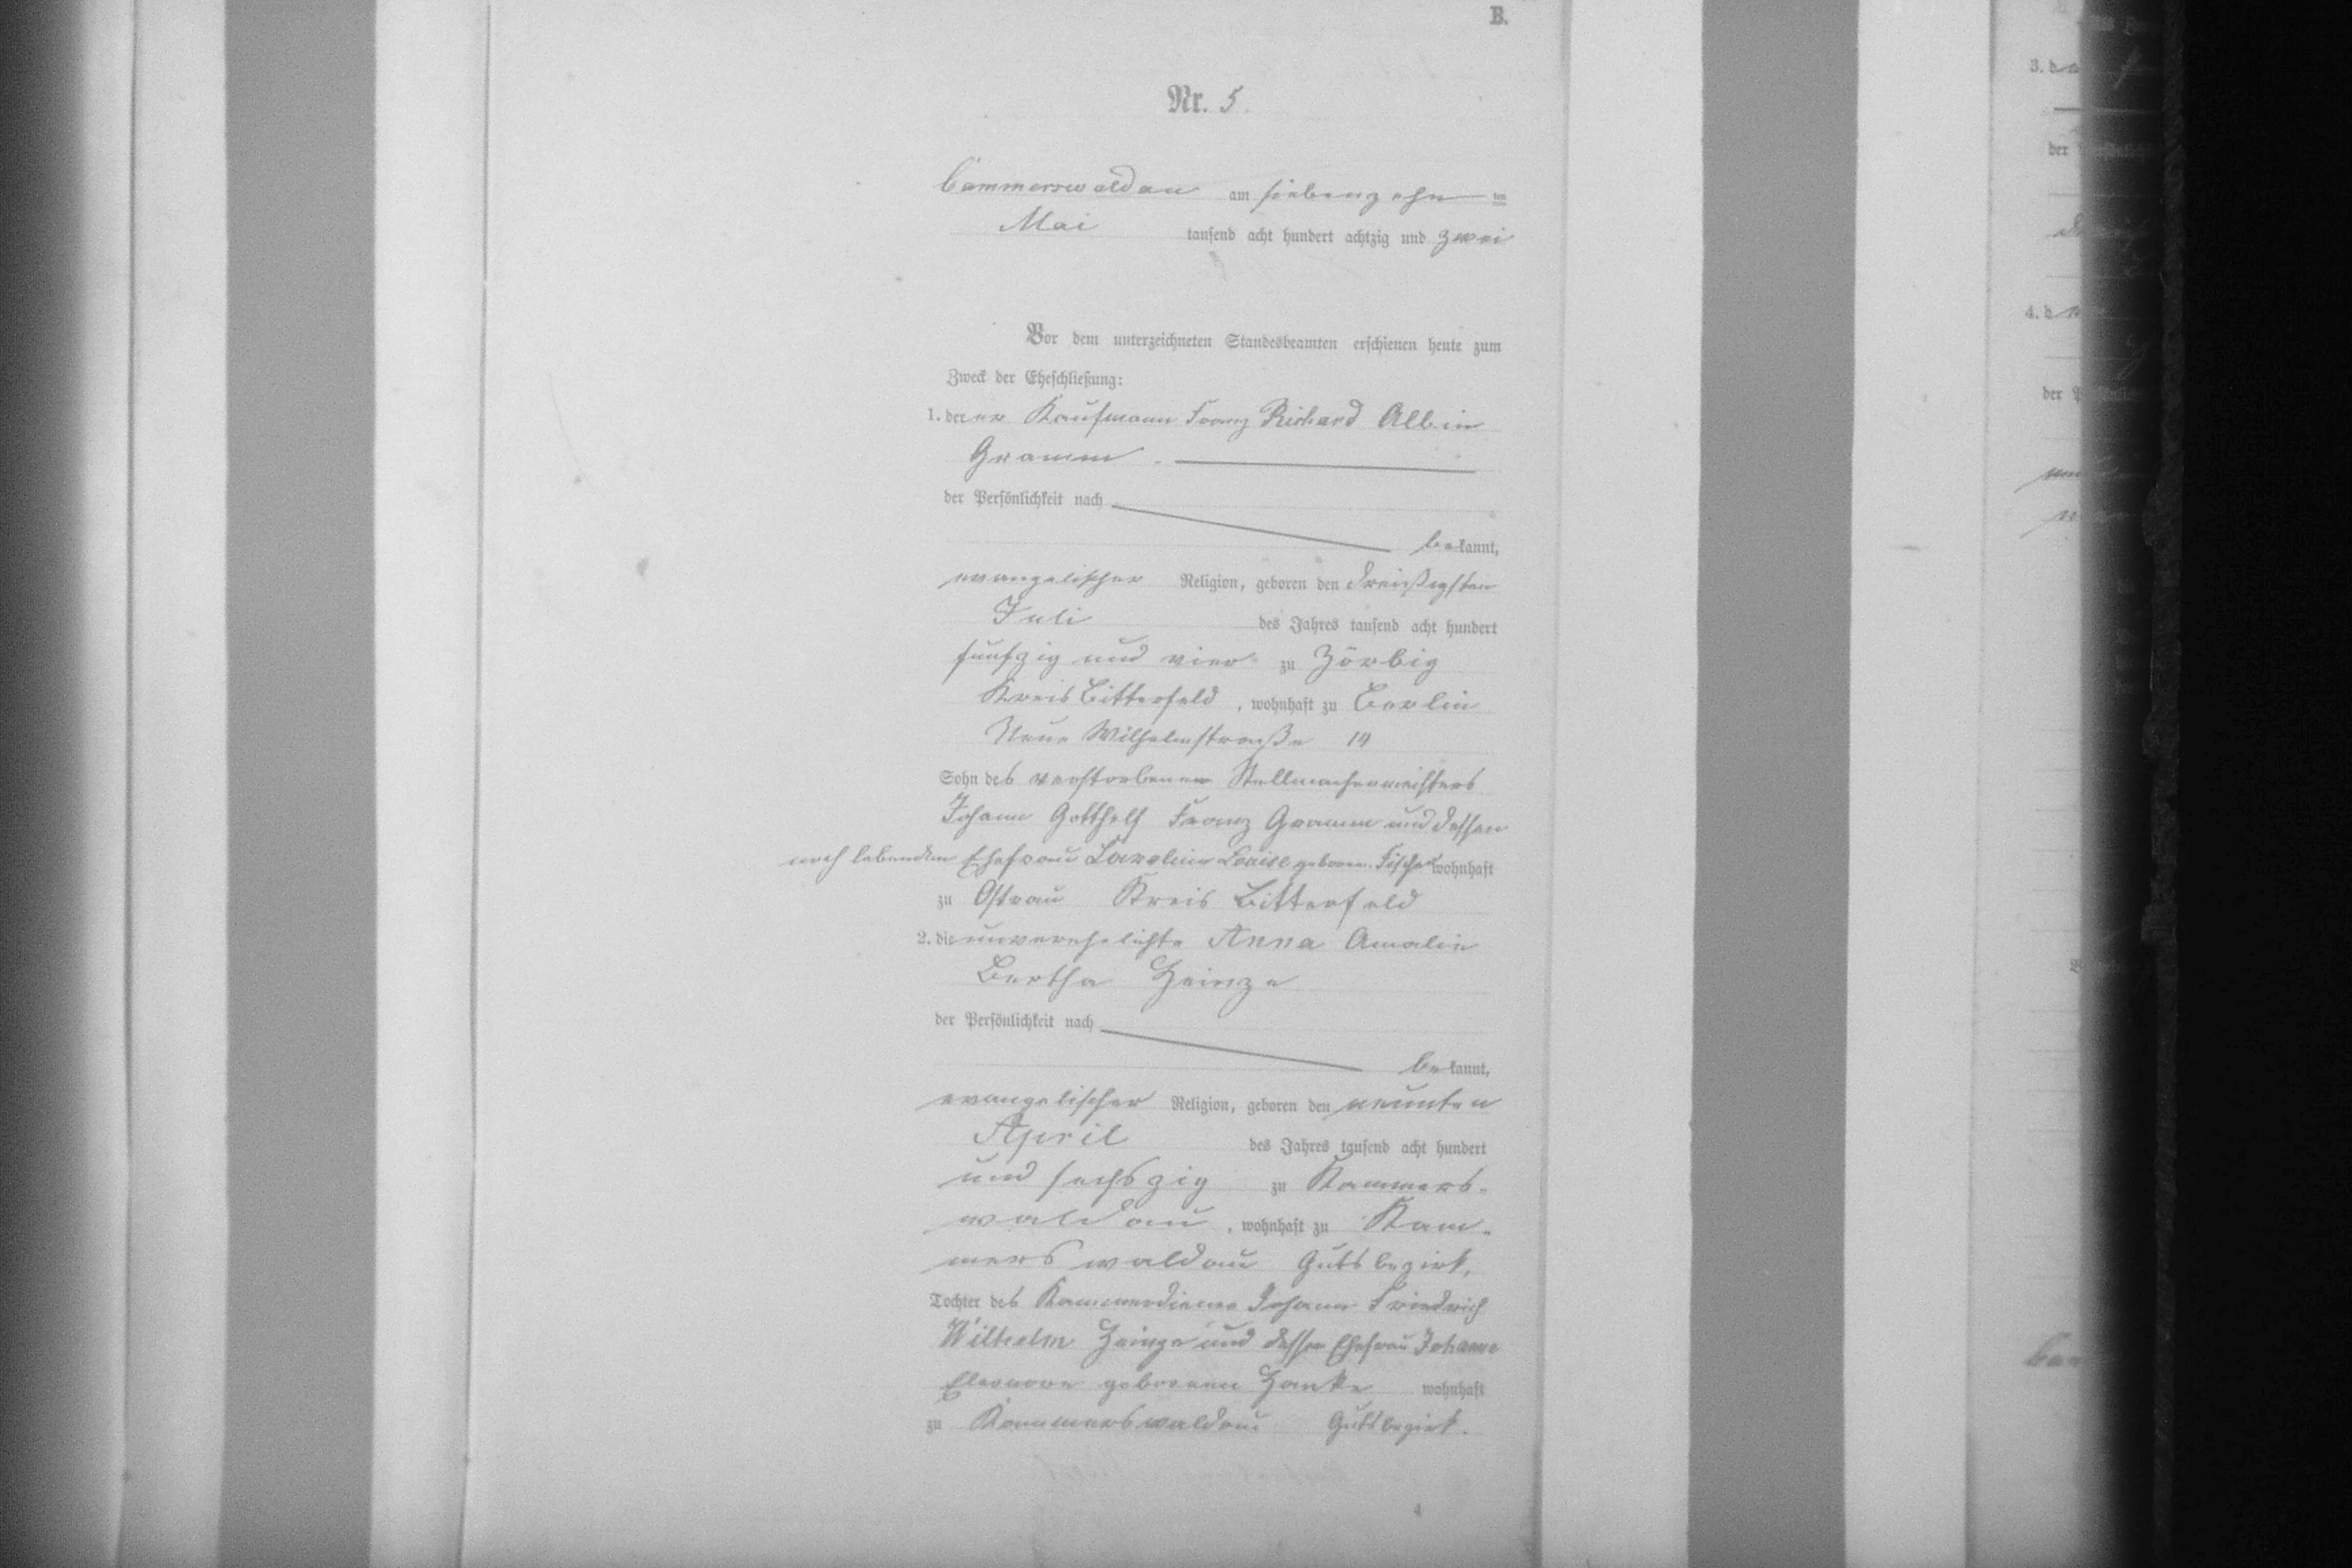 B.
Nr. 5.
Cammerswaldau am siebenzehn ten
Mai tausend acht hundert achtzig und zwei
Vor dem unterzeichneten Standesbeamten erschienen heute zum
Zweck der Eheschließung:
1. der Kaufmann Franz Richard Albin
Gramm
der Persönlichkeit nach
bekannt,
evangelischer Religion, geboren den dreißigsten
Juli des Jahres tausend acht hundert
fünfzig und vier zu Zörbig
Kreis Bitterfeld, wohnhaft zu Berlin
Neue Wilhelmstraße 14
Sohn des verstorbenen Stellmachermeisters
Johann Gotthelf Franz Gramm und dessen
noch lebenden Ehefrau Louise geboren. Fischer wohnhaft
zu Ostrau Kreis Bitterfeld
2. die unverehelichte Anna Amalie
Bertha Heinze
der Persönlichkeit nach
bekannt,
evangelischer Religion, geboren den neunten
April des Jahres tausend acht hundert
und sechszig zu Kammers-
waldau, wohnhaft zu Kam-
merswaldau Gutsbezirk,
Tochter des Kammerdiener Johann Friedrich
Wilhelm Heinze und dessen Ehefrau Johanne
Eleonore geborenen Hanke wohnhaft
zu Kammerswaldau Gutsbezirk.
4
3. d
der
4. d
der P